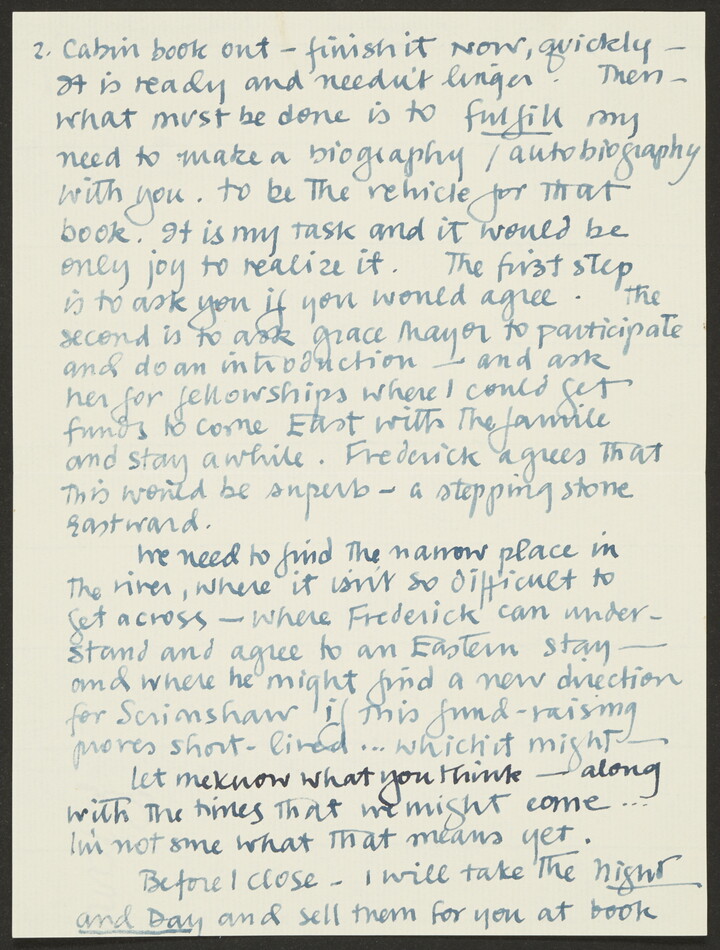 2. Cabin book out – finish it now, quickly –
It is ready and needn't linger. Then –
what must be done is to fulfill my
need to make a biography / autobiography
with you. to be the vehicle for that
book. It is my task and it would be
only joy to realize it. The first step
is to ask you if you would agree. The
second is to ask Grace Mayer to participate
and do an introduction – and ask
her for fellowships where I could get
funds to come East with the familie
and stay awhile. Frederick agrees that
this would be superb – a stepping stone
eastward.
We need to find the narrow place in
the river, where it isn't so difficult to
get across – where Frederick can under-
stand and agree to an Eastern stay —
and where he might find a new direction
for Scrimshaw if this fund-raising
proves short-lived ... which it might —
Let me know what you think — along
with the times that we might come ...
I'm not sure what that means yet.
Before I close – I will take the Night
and Day and sell them for you at book